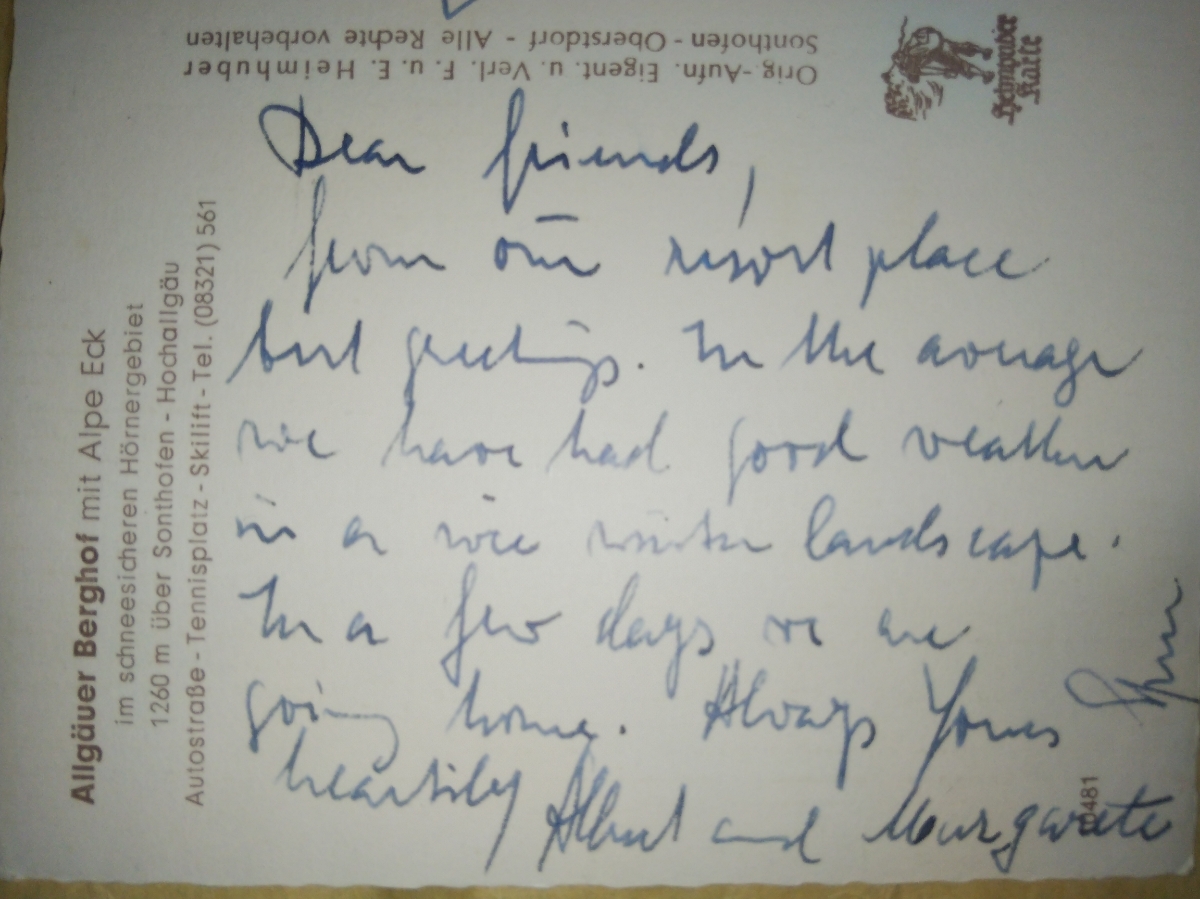 Allgäuer Berghof mit Alpe Eck
im schneesicheren Hörnergebiet
1260 m über Sonthofen - Hochallgäu
Autostraße - Tennisplatz - Skilift - Tel. (08321) 561
Orig.-Aufn. Eigent. u. Verl. F. u. E. Heimhuber
Sonthofen - Oberstdorf - Alle Rechte vorbehalten
Heimhuber
Karte
Dear friends,
from our resort place
best greetings. In the average
we have had good weather
in a nice winter landscape.
In a few days we are
going home. Always Yours
heartily Albert and Margarete
0481